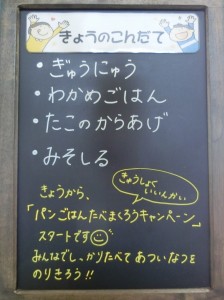 きょうのこんだて
・ぎゅうにゅう
・わかめごはん
・たこのからあげ
・みそしる
きゅうしょく
いいんかい
きょうから、
「パンごはんたべまくろうキャンペーン」
スタートです
みんなでし、かりたべて あついなつを
のりきろう!!